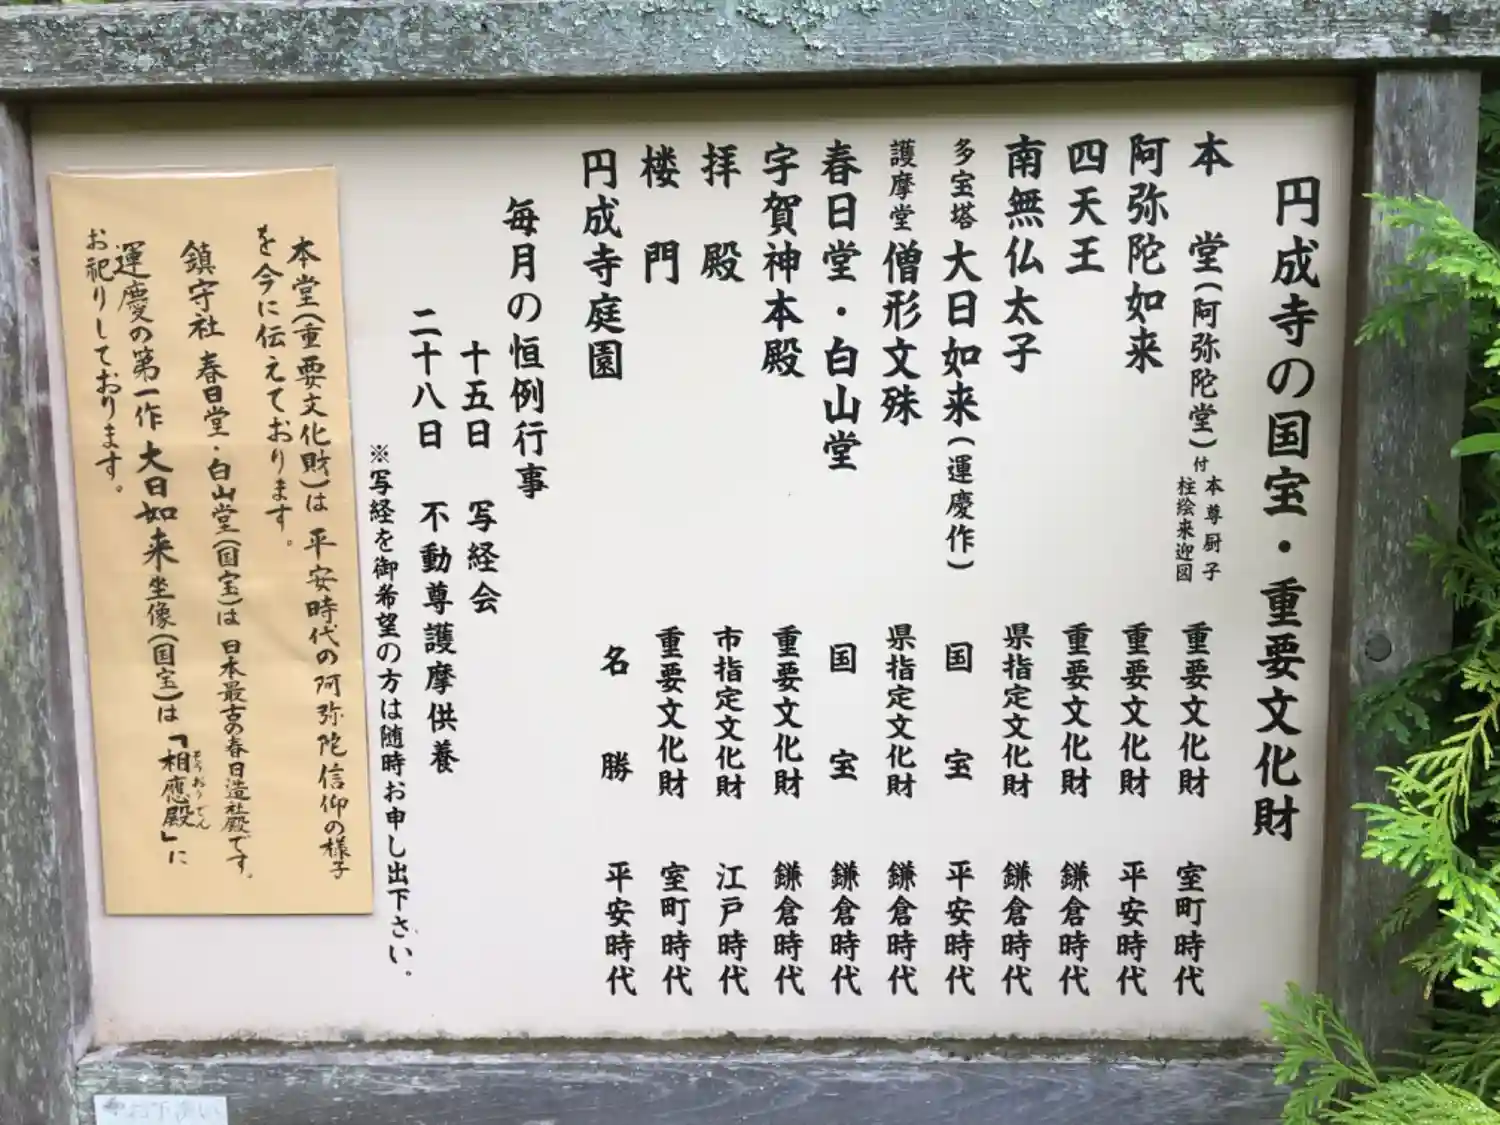 円成寺の国宝・重要文化財
本堂(阿弥陀堂)付 本尊厨子 柱絵来迎図 重要文化財 室町時代
阿弥陀如来 重要文化財 平安時代
四天王 重要文化財 鎌倉時代
南無仏太子 県指定文化財 鎌倉時代
多宝塔 大日如来(運慶作) 国宝 平安時代
護摩堂 僧形文殊 県指定文化財 鎌倉時代
春日堂・白山堂 国宝 鎌倉時代
宇賀神本殿 重要文化財 鎌倉時代
拝殿 市指定文化財 江戸時代
楼門 重要文化財 室町時代
円成寺庭園 名勝 平安時代
毎月の恒例行事
十五日 写経会
二十八日 不動尊護摩供養
※写経を御希望の方は随時お申し出下さい.
本堂(重要文化財)は 平安時代の阿弥陀信仰の様子
を今に伝えております。
鎮守社 春日堂・白山堂(国宝)は 日本最古の春日造社殿です。
運慶の第一作 大日如来坐像(国宝)は「相應殿」に
そうおうでん
お祀りしております。